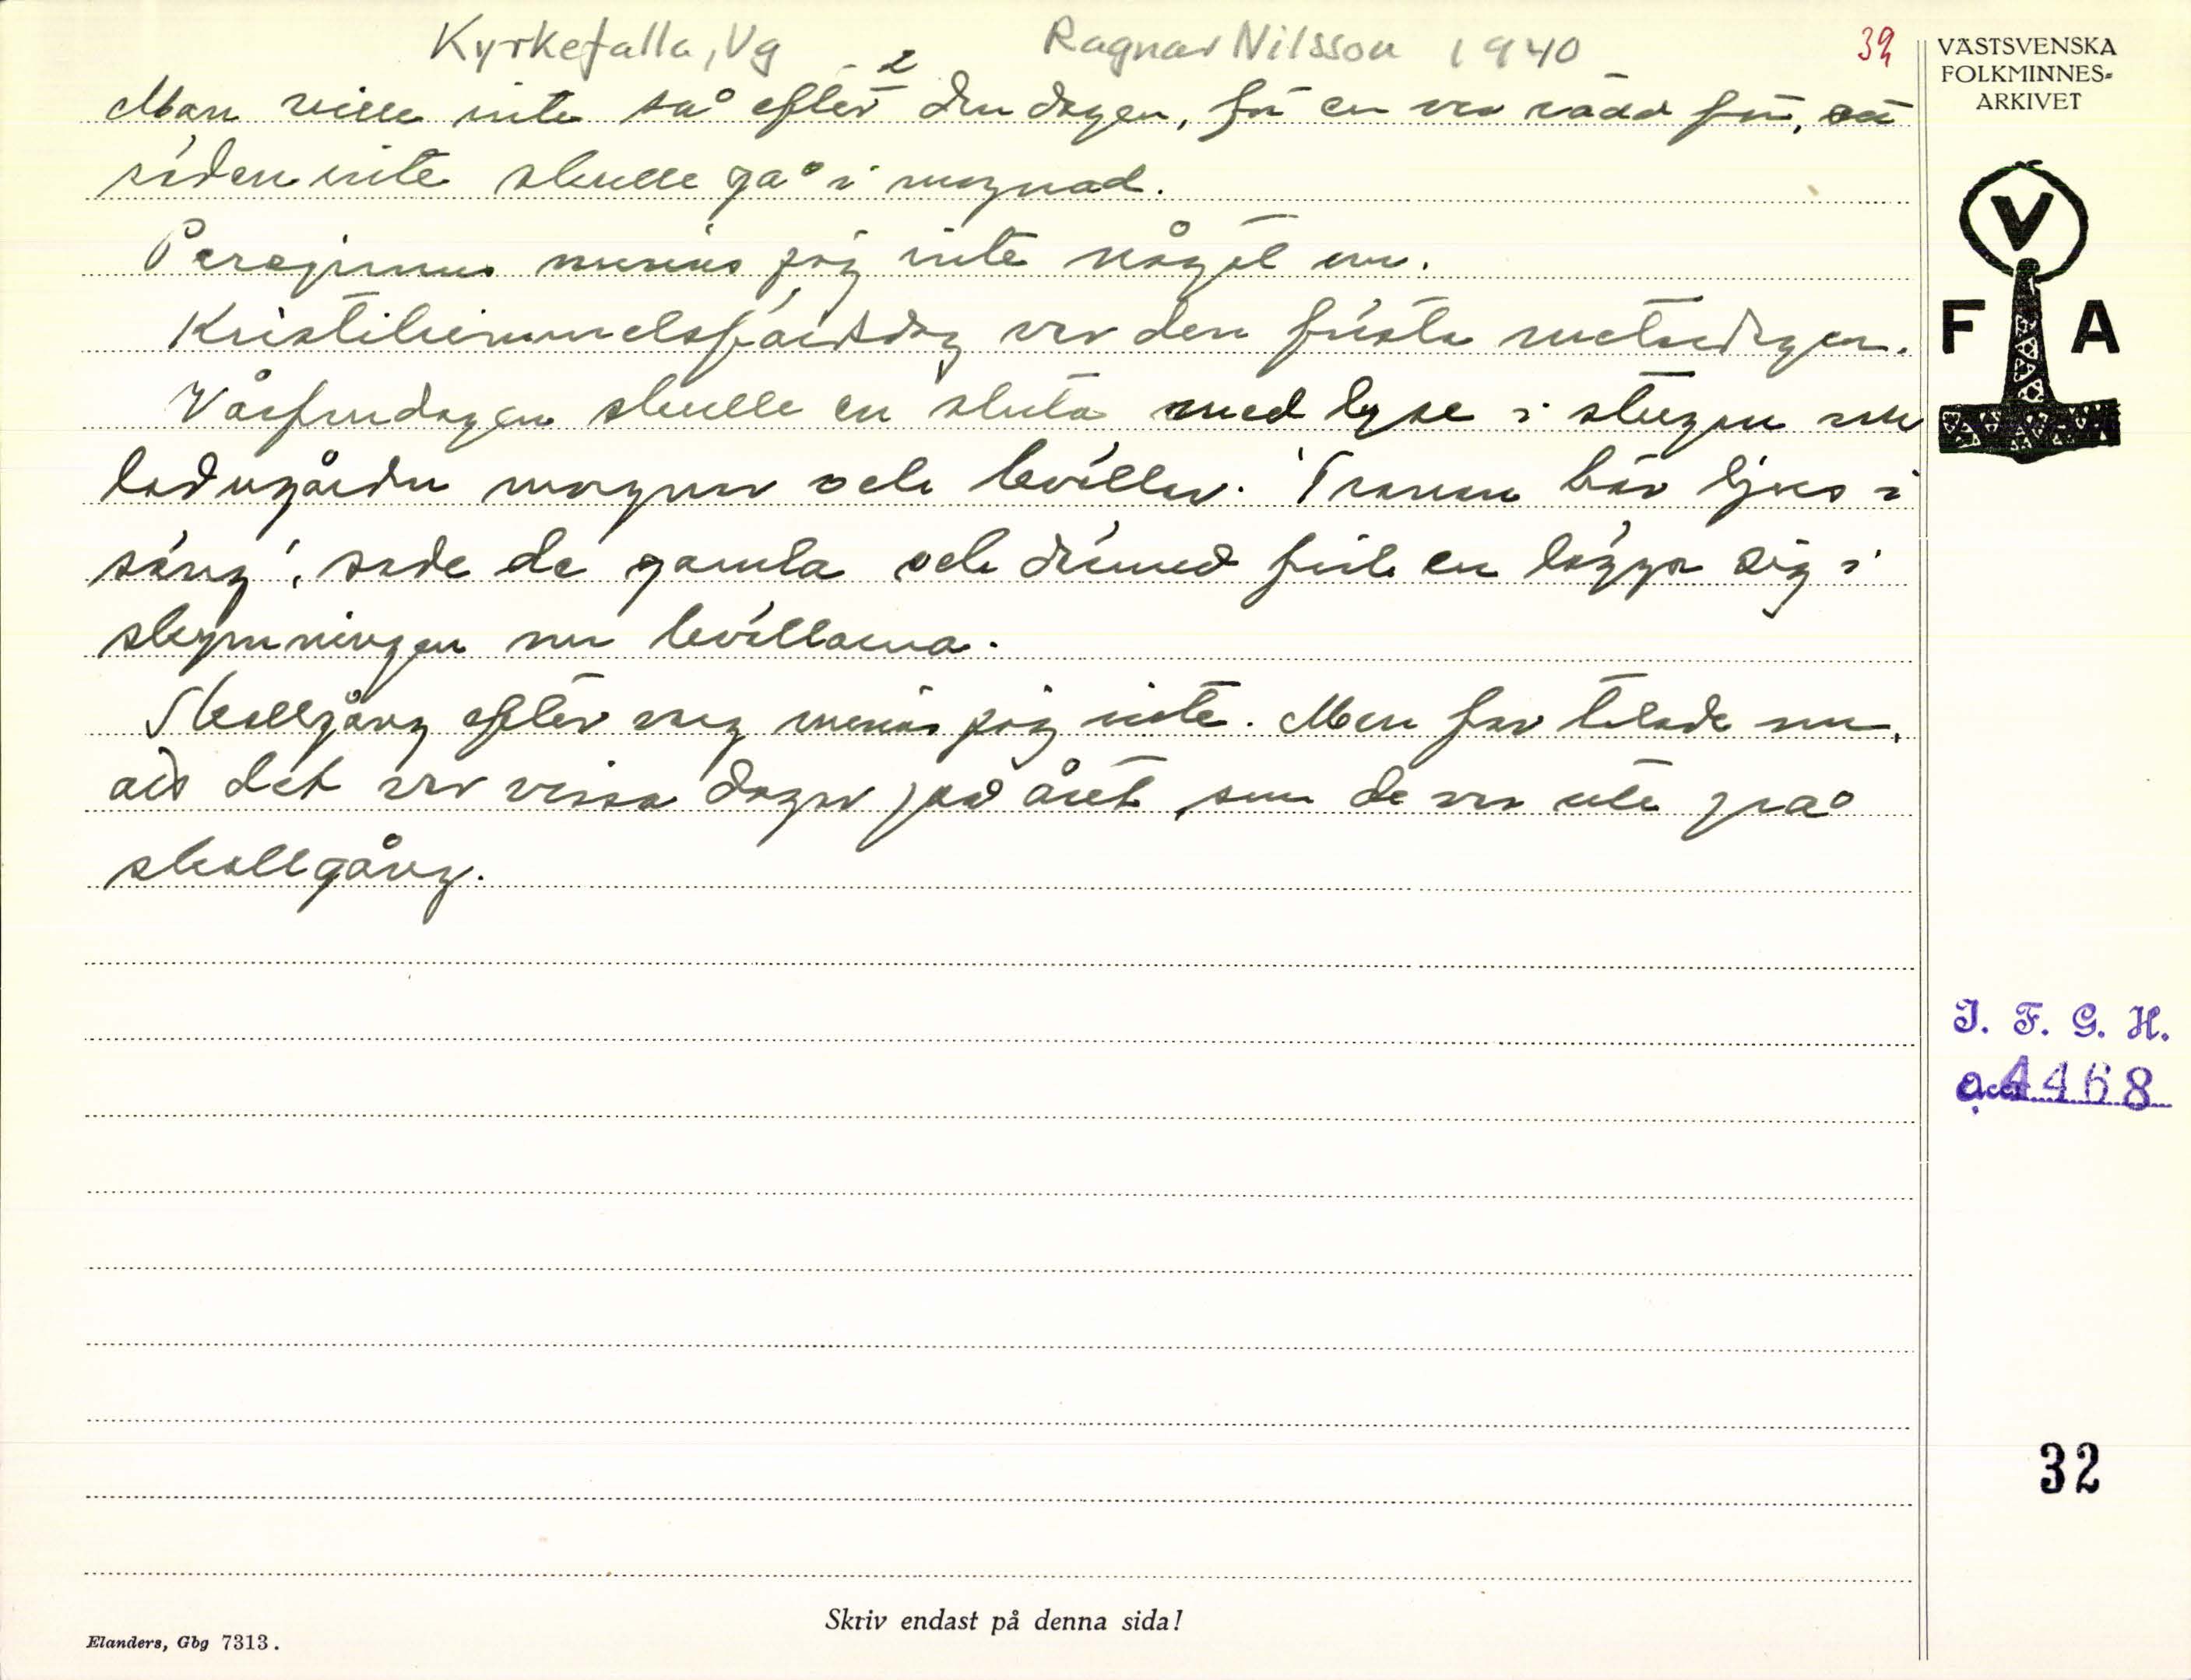 Kyrkefalla, Vg
Ragnar Nilsson 1940
32
VÄSTSVENSKA
FOLKMINNES=
ARKIVET
2
Man ville inte så efter den dagen, för en var rädd för, att
säden inte skulle gå i mognad.
Peregrinus minns jag inte något om.
Kristihimmelsfärdsdag var den första metardagen.
Vårfrudagen skulle en sluta med lyse i stugan och
ladugården morgnar och kvällar. 'Tranan bär ljus i
säng', sade de gamla och därmed fick en lägga sig i
skymningen om kvällarna.
Skallgång efter varg minns jag inte. Men far talade om,
att det var vissa dagar på året, som de var ute på
skallgång.
V
F A
I. F. G. H.
acc 4468
32
Skriv endast på denna sida!
Elanders, Gbg 7313.